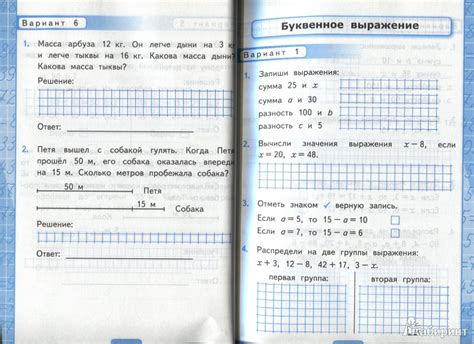 Вариант 6
1. Масса арбуза 12 кг. Он легче дыни на 3 кг
и легче тыквы на 16 кг. Какова масса дыни?
Какова масса тыквы?
Решение:
Ответ:
2. Петя вышел с собакой гулять. Когда Петя
прошёл 50 м, его собака оказалась впереди
на 15 м. Сколько метров пробежала собака?
50 м
Петя
15 м
Собака
Решение:
Ответ:
Буквенное выражение
Вариант 1
1. Запиши выражения:
сумма 25 и x
сумма a и 30
разность 100 и b
разность c и 5
2. Вычисли значения выражения x − 8, если
x = 20, x = 48.
3. Отметь знаком ✓ верную запись.
Если a = 5, то 15 − a = 10
Если a = 7, то 15 − a = 6
4. Распредели на две группы выражения:
x + 3, 12 − 8, 42 + 17, 3 − x.
первая группа:
вторая группа:
Лабиринт